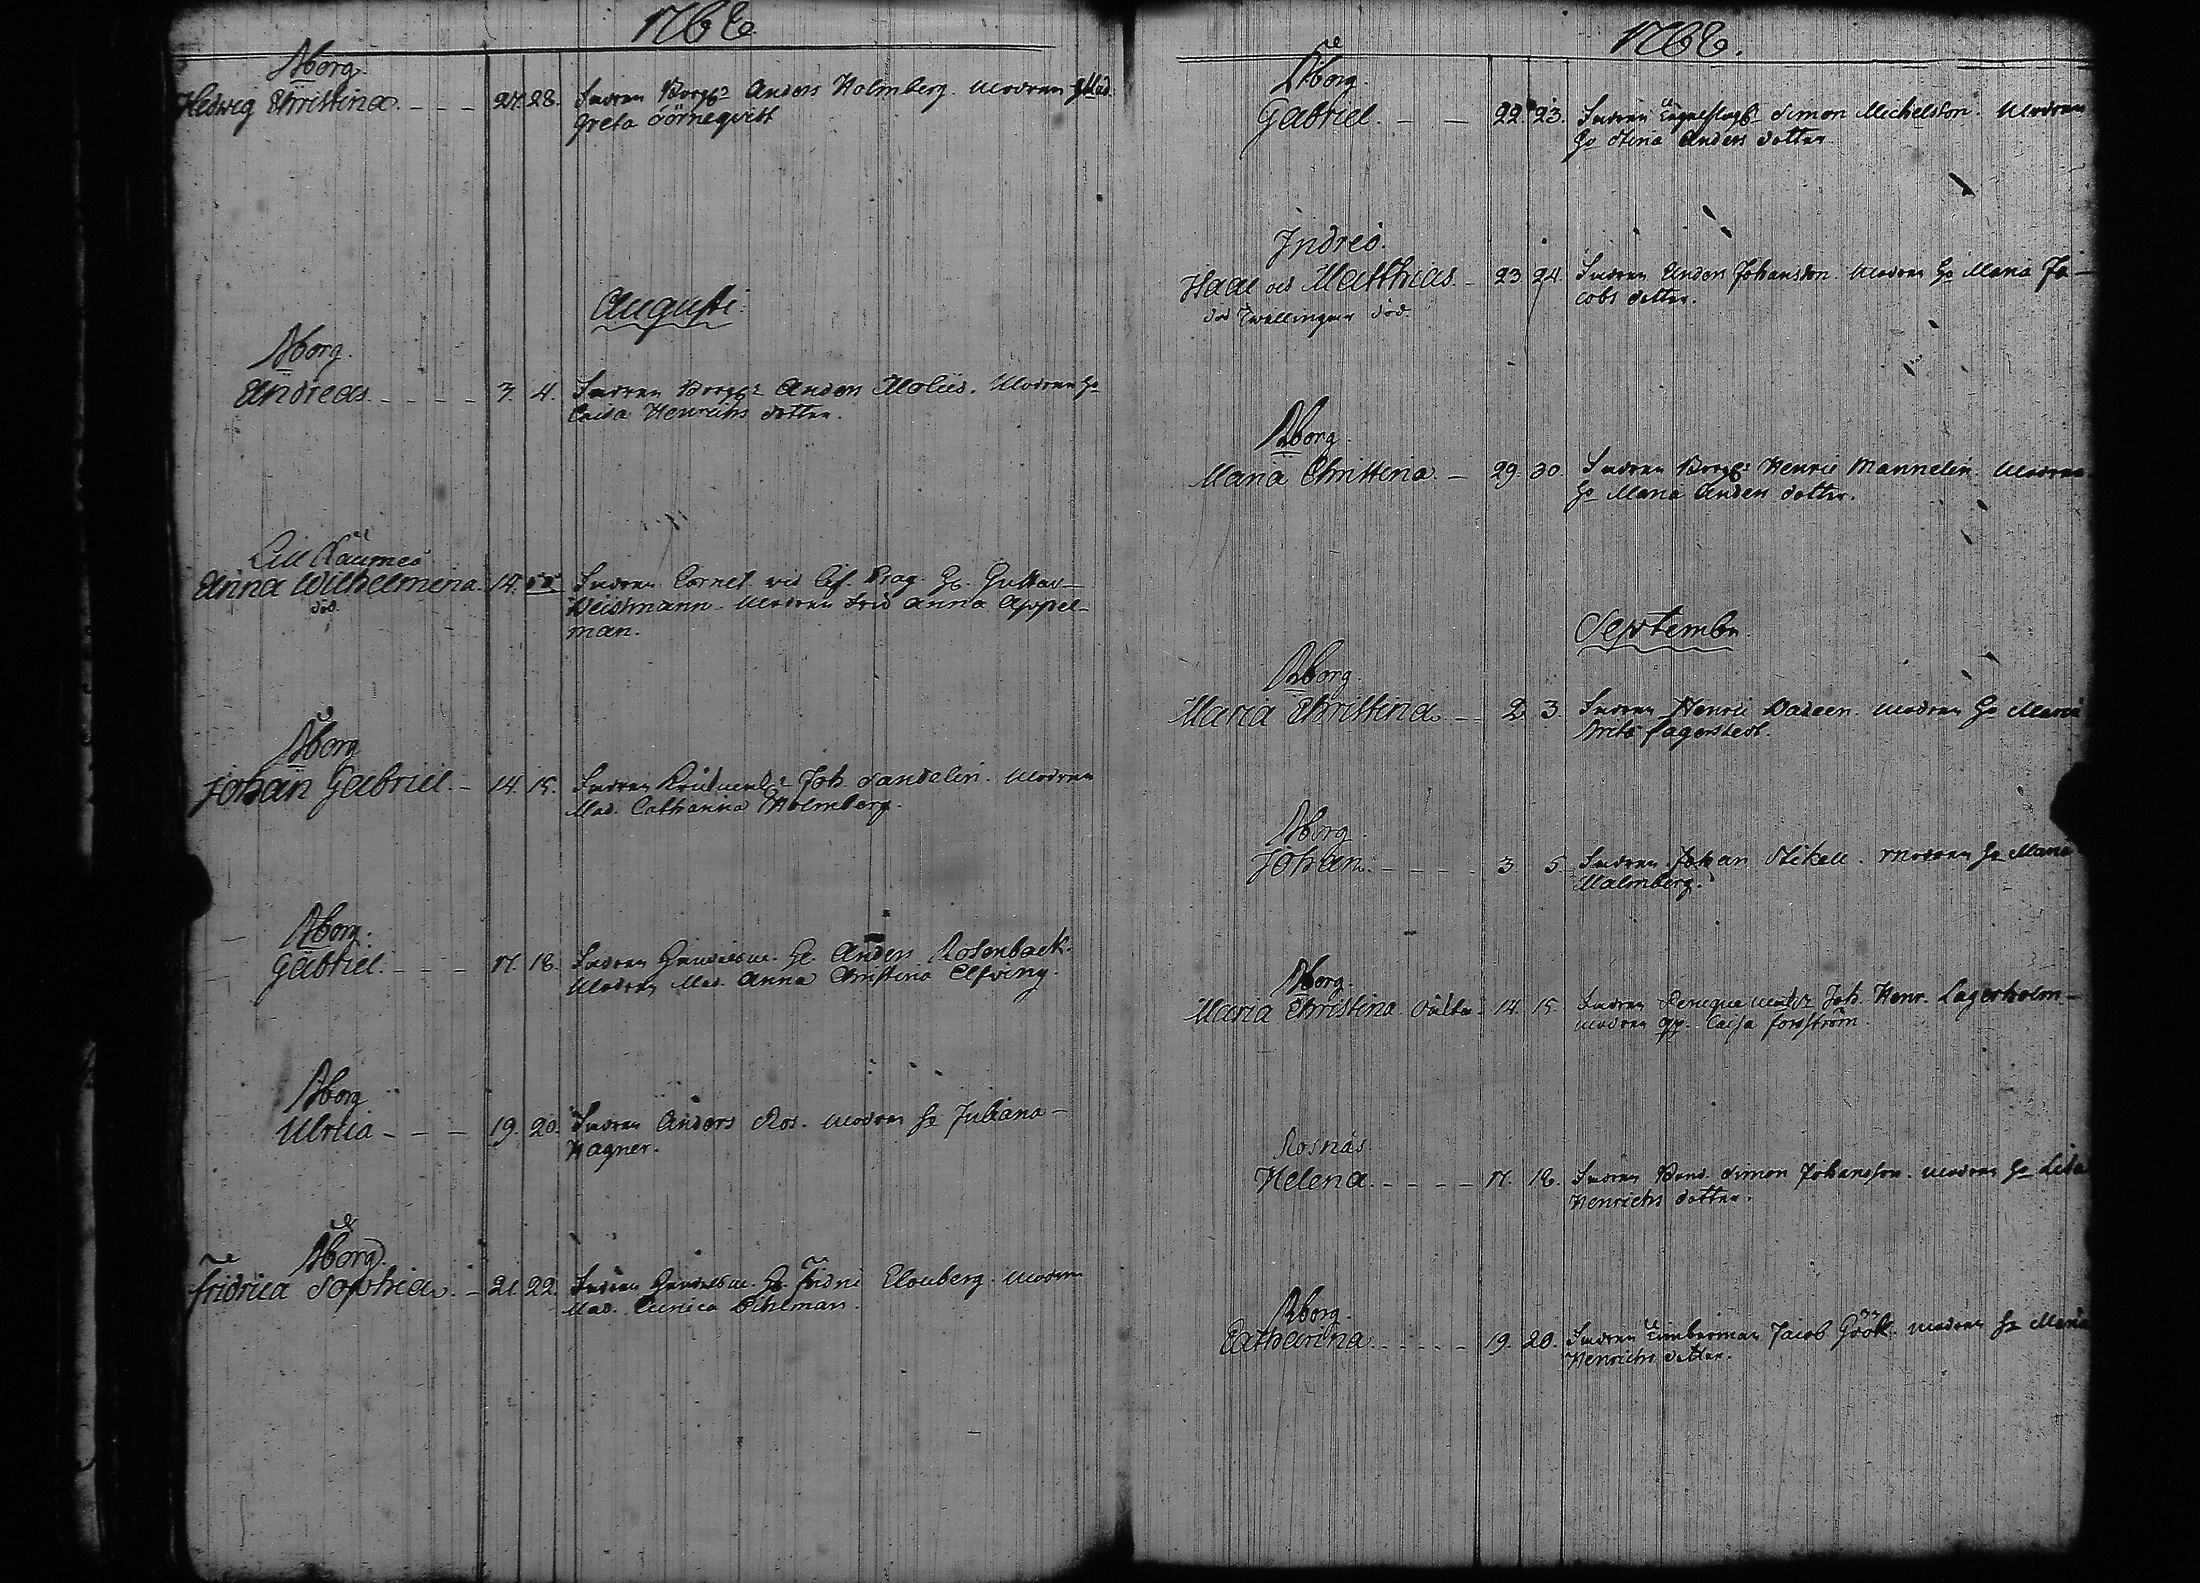 1766.
Åborg.
Hedvig Christina. - - - 27. 28. Fadren Borg: Anders Holmberg. Modren Mad.
Greta Törneqvist
Augusti.
Åborg.
Andreas. - - - - 3. 4. Fadren Borg: Anders Moliis. Modren H:
Caisa Henrichs dotter.
Lill Näumes
Anna Wilhelmina. 14. Fadren Cornet. vid Lif. Drag. H: Gustav
Weismann. Modren Anna Appel-
död. man.
Åborg
Johan Gabriel. - 14. 15. Fadren Joh. Sandelin. Modren
Mad. Catharina Holmberg.
Åborg.
Gabriel. - - - 17. 18. Fadren Handelsm. H: Anders Rosenback.
Modren Mad. Anna Christina Elfving.
Åborg
Ulrica - - - 19. 20. Fadren Anders Ros. Modren H: Juliana
Wagner.
Åborg.
Fridrica Sophia. - 21. 22. Fadren Handelsm. H: Fridric Clouberg. Modren
Mad. Pihlman.
1766.
Åborg.
Gabriel. - - 22. 23. Fadren Simon Michelsson. Modren
H: Stina Anders dotter.
Indres.
Isaac och Matthias. - 23 24. Fadren Anders Johansson. Modren H: Maria Ja-
Twellingar död. cobs dotter.
Åborg.
Maria Christina. - 29. 30. Fadren Borg: Henric Mannelin. Modren
H: Maria Anders dotter.
September.
Åborg.
Maria Christina. - 2. 3. Fadren Henric Daleen. Modren H: Maria
Brita Fagerstedt.
Åborg.
Johan. - - - - 3. 5. Fadren Johan Stikell. Modren H: Maria
Malmberg.
Åborg.
Maria Christina 14. 15. Fadren Joh. Henr. Lagerholm
modren Caisa Forsström.
Rosnäs
Helena. - - - - 17. 18. Fadren Bond. Simon Johansson. Modren H: Lisa
Henrichs dotter.
Åborg.
Catharina. - - - - - 19. 20. Fadren Timberman Jacob Gröök. Modren H: Maria
Henrichs dotter.